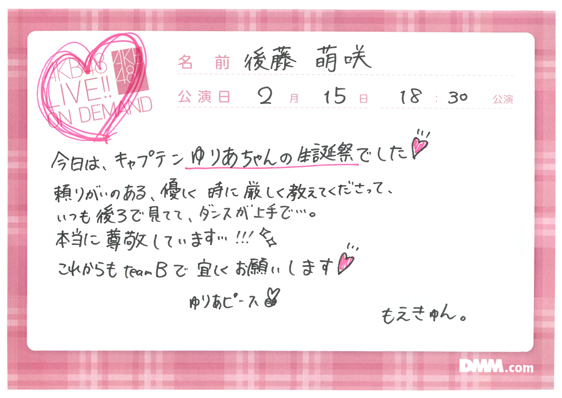 AKB48
LIVE!!
ON DEMAND
AKB
48
名前 後藤 萌咲
公演日 2月 15日 18:30 公演
今日は、キャプテンゆりあちゃんの生誕祭でした
頼りがいのある、優しく 時に厳しく教えてくださって、
いつも後ろで見てて、ダンスが上手で…。
本当に尊敬しています…!!!
これからも teamBで 宜しくお願いします
ゆりあピース
もえきゅん。
DMM.com